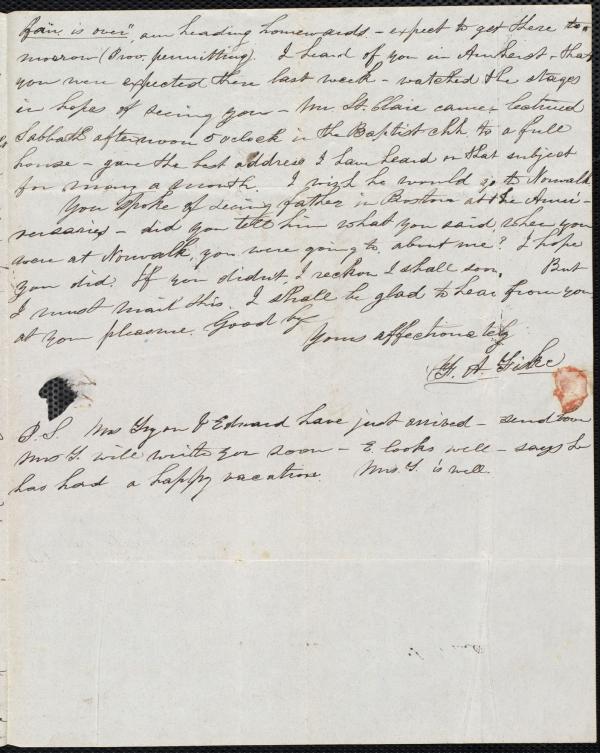 fair is over", am heading homewards - expect to get there to-
morrow (Prov. permitting). I heard of you in Amherst - that
you were expected there last week - watched the stages
in hopes of seeing you - Mr. St. Clair came & lectured
Sabbath afternoon 5 o'clock in the Baptist chh. to a full
house - gave the best address I have heard on that subject
for many a month. I wish he would go to Norwalk.
You spoke of seeing father in Boston at the Anni-
versaries - did you tell him what you said when you
were at Norwalk, you were going to, about me? I hope
you did. If you didn't, I reckon I shall soon. But
I must mail this. I shall be glad to hear from you
at your pleasure. Good by
Yours affectionately
F. A. Fiske
P.S. Mrs Tryon & Edward have just arrived - send love
Mrs T. will write you soon - E. looks well - says he
has had a happy vacation. Mrs. T. is well.